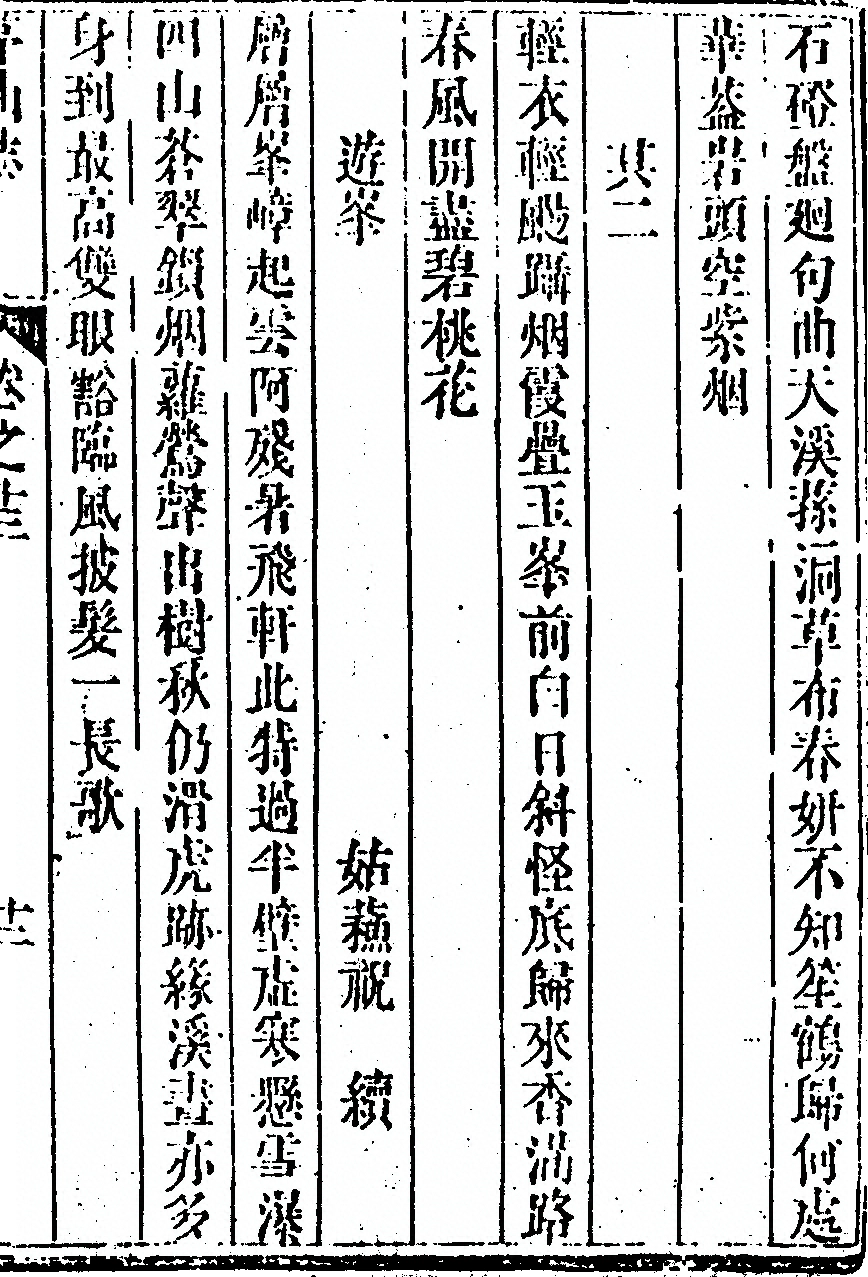 石磴盤廻句曲天溪蓀洞草布春妍不知笙鶴歸何處
華蓋岩頭空紫烟
其二
輕衣輕颺躡烟霞疊玉峯前白日斜怪底歸來香滿路
春風開盡碧桃花
遊峯 姑蘓祝 續
層層峯嶂起雲阿殘暑飛軒此特過半壁虛寒懸雪瀑
四山蒼翠鎖烟蘿鶯聲出樹秋仍滑虎跡緣溪晝亦多
身到最高雙眼豁臨風披髮一長歌
茅山志 卷之十三 十三